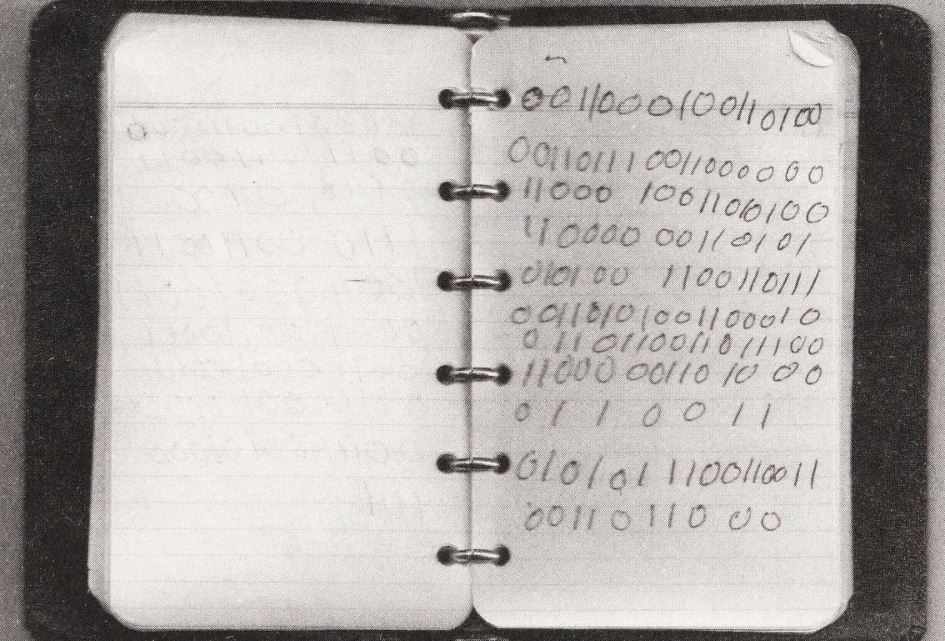 0011000100110100
0011011100110000000
11000 1001100100
110000 00110101
010100 1100110111
00110101001100010
0110110011011100
11000 0011010 00
0110011
010101 1100110011
0011011000